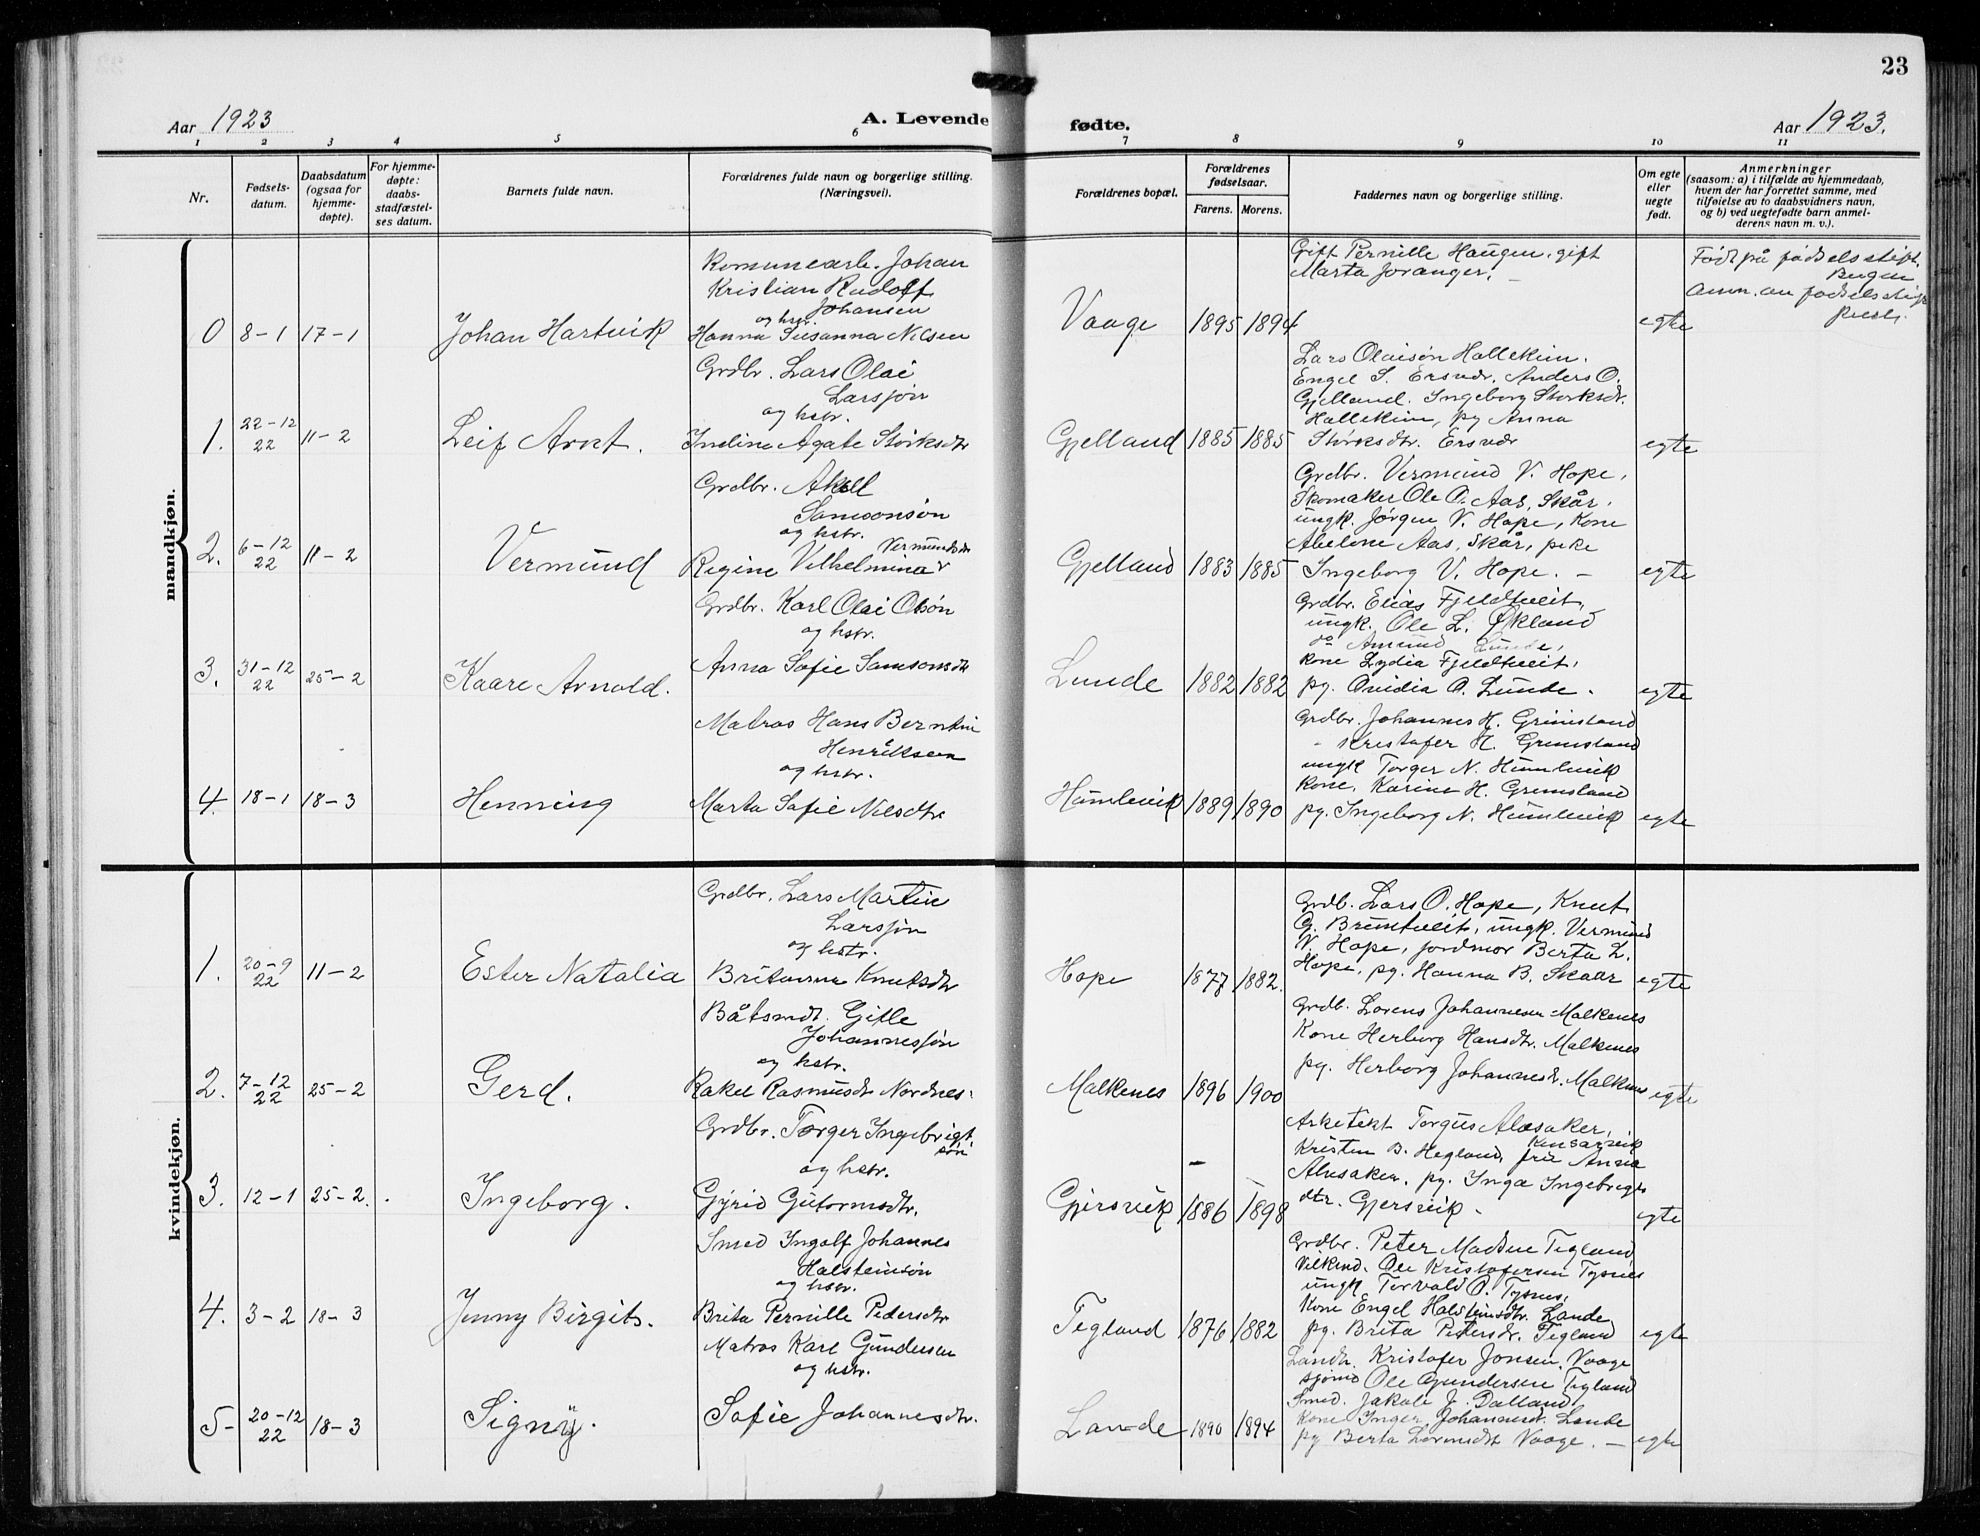 23
Aar 1923
A. Levende fødte.
Aar 1923.
1 2 3 4 5 6 7 8 9 10 11
Nr.
Fødsels-
datum.
Daabsdatum
(ogsaa for
hjemme-
døpte).
For hjemme-
døpte:
daabs-
stadfæstel-
ses datum.
Barnets fulde navn.
Forældrenes fulde navn og borgerlige stilling.
(Næringsvei).
Forældrenes bopæl.
Forældrenes
fødselsaar.
Farens. Morens.
Faddernes navn og borgerlige stilling.
Om egte
eller
uegte
født.
Anmerkninger
(saasom: a) i tilfælde av hjemmedaab,
hvem der har forrettet samme, med
tilføielse av to daabsvidners navn,
og b) ved uegtefødte barn anmel-
derens navn m. v.).
mandkjøn.
0 8-1 17-1 Johan Hartvik
Komunearb. Johan
Kristian Rudolf
Johansen
og hstr.
Hanna Susanna Nilsen
Vaage 1895 1894
Gift Pernille Haugen, gift
Marta Joranger. -
egte
Født på fødselsstift.
Bergen
Anm. av fødselsstift
1. 22-12 22 11-2 Leif Arnt.
Grdbr. Lars Olai
Larssøn
og hstr.
Indina Agate Størksdtr
Gjelland 1885 1885
Lars Olaisøn Hallekim.
Engel S. Ersvær, Anders O.
Gjelland. Ingeborg Størksdr.
Hallekim, pg Anna
Størksdtr. Ersvær
egte
2. 6-12 22 11-2 Vermund
Grdbr. Aksel
Samsonsøn
og hstr.
Regine Vilhelmina Vermundsdr
Gjelland 1883 1885
Grdbr. Vermund V. Hope,
Skomaker Ole O. Aas, Skår,
ungk. Jørgen V. Hope, Kone
Abelone Aas, Skår, pike
Ingeborg V. Hope. -
egte
3. 31-12 22 25-2 Kaare Arnold.
Grdbr. Karl Olai Olsøn
og hstr.
Anna Sofie Samsonsdtr
Lunde 1882 1882
Grdbr. Elias Fjeldtveit,
ungk. Ole L. Økland
do Amund Lunde,
kone Lydia Fjeldtveit,
pg. Ovidia O. Lunde.
egte
4. 18-1 18-3 Henning
Matros Hans Berntin
Henriksen
og hstr.
Marta Sofie Nilsdtr.
Humlevik 1889 1890
Grdbr. Johannes H. Grimsland
- Kristofer H. Gremsland
ungk Torger N. Humlevik
kone, Karine H. Gremsland
pg. Ingeborg N. Humlevik
egte
kvindekjøn.
1. 20-9 22 11-2 Ester Natalia
Grdbr. Lars Martin
Larssøn
og hstr.
Britanna Knutsdtr
Hope 1877 1882.
Grdb. Lars O. Hope, Knut
G. Bruntveit, ungk. Vermund
V. Hope, jordmor Berta L.
Hope, pg. Hanna B. Skaar
egte
2. 7-12 22 25-2 Gerd.
Båtsmdt. Gitle
Johannessøn
og hstr.
Rakel Rasmusdt Nordnes.
Malkenes 1896 1900
Grdb. Lorens Johannesen Malkenes
Kone Herborg Hansdtr. Malkenes
pg. Herborg Johannesdt. Malkenes
egte
3. 12-1 25-2. Ingeborg.
Grdbr. Torger Ingebrigt-
søn
og hstr.
Gyrid Gutormsdtr.
Gjersvik 1886 1898
Arkitekt Torgus Alsaker,
Kristen B. Hegland, fru Anna Kinsarvik
Alsaker, pg. Inga Ingebrigts
dtr. Gjersvik.
egte
4. 3-2 18-3 Jenny Birgit.
Smed Ingolf Johannes
Halsteinsøn
og hstr.
Brita Pernille Pedersdtr
Tegland 1876 1882
Grdbr. Peter Madsen Tegland
Ole Kristofersen Tysnes
ungk Torvald O. Tysnes,
Kone Engel Halsteinsdtr. Lande
pg. Brita Petersdr. Tegland
egte
5- 20-12 22 18-3 Signy.
Matros Karl Gundersen
og hstr.
Sofie Johannesdtr.
Lande 1890 1894
Landh. Kristofer Jonsen, Vaage
sjømd Ole Gundersen Tegland
Smed. Jakob J. Dalland
Kone Inger Johannesdt. Lande
pg Berta Lorensdt Vaage. -
egte